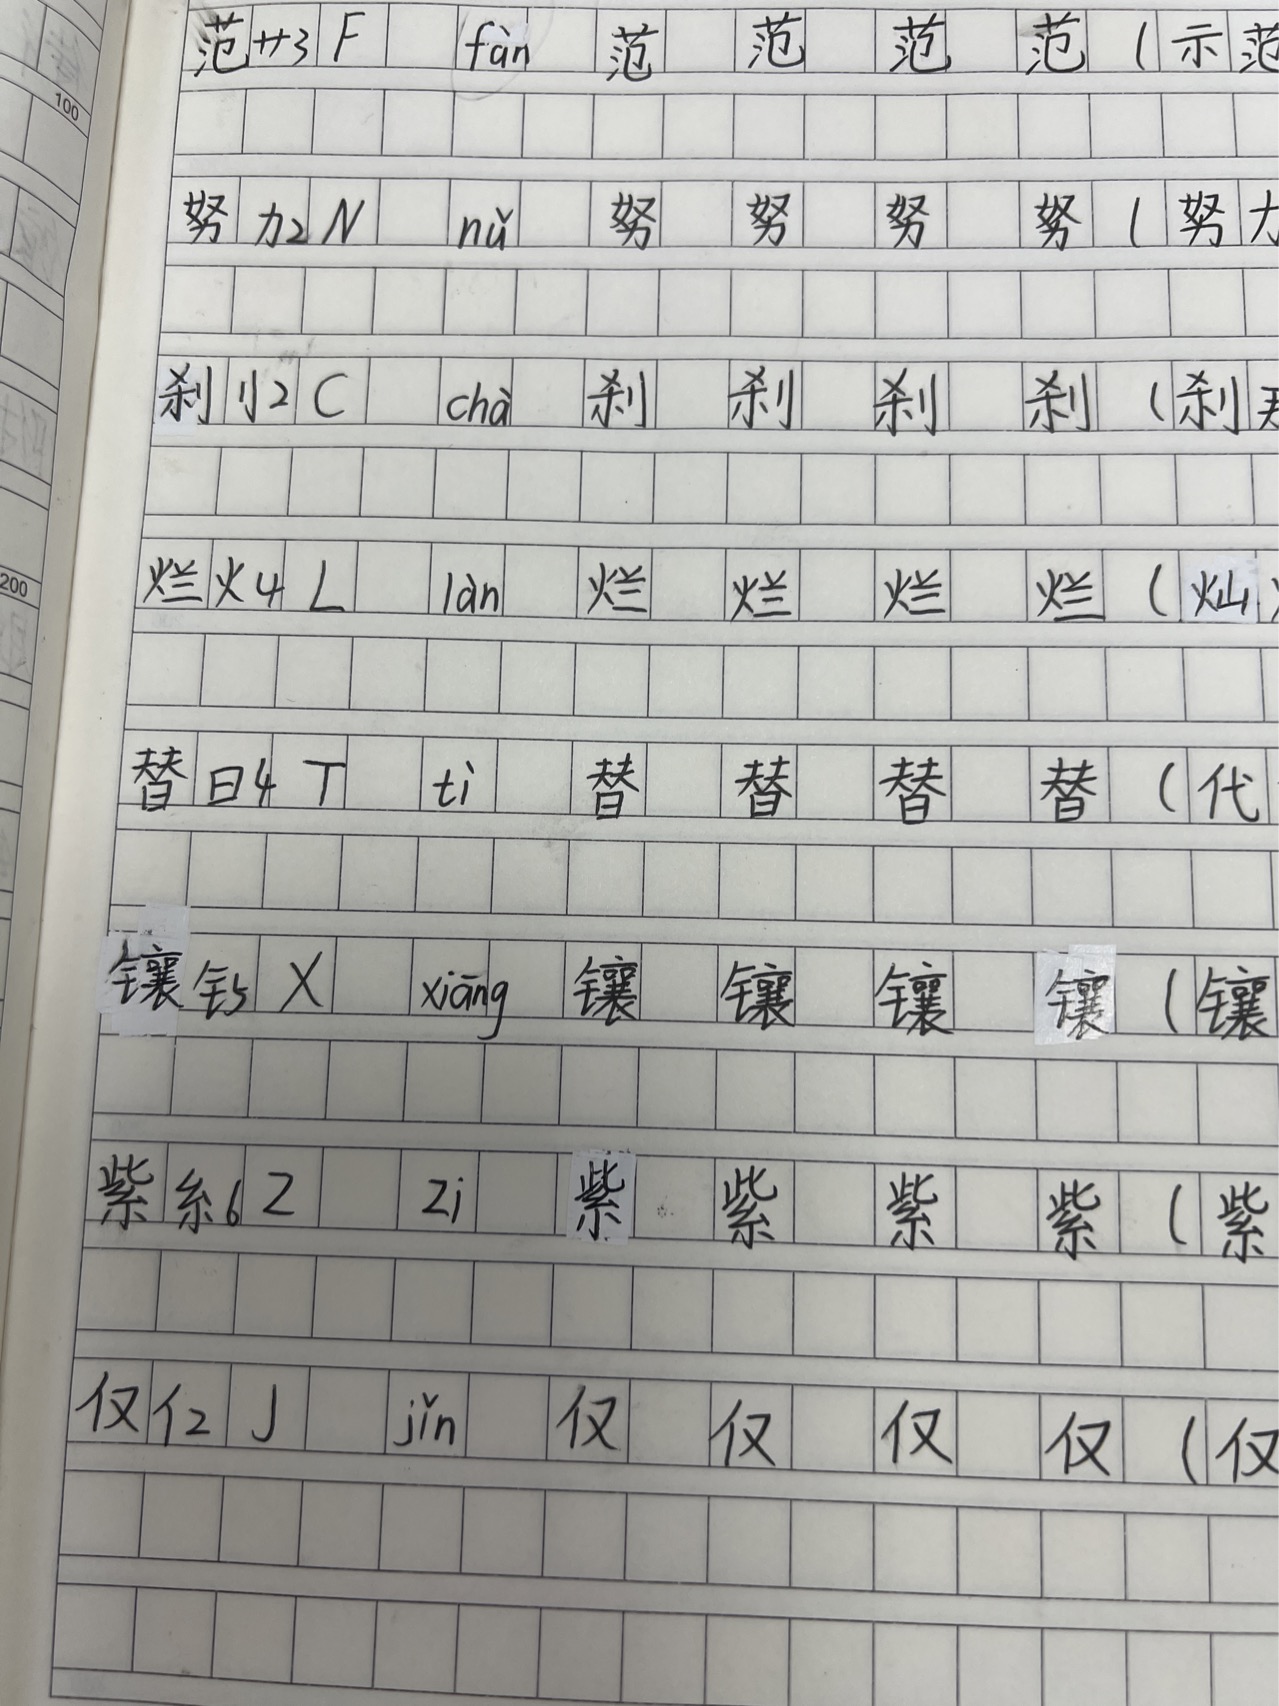 范 艹3 F fàn 范 范 范 范 （示范
努 力2 N nǔ 努 努 努 努 （努力
刹 刂2 C chà 刹 刹 刹 刹 （刹
烂 火4 L làn 烂 烂 烂 烂 （灿
替 日4 T tì 替 替 替 替 （代
镶 钅5 X xiāng 镶 镶 镶 镶 （镶
紫 糹6 Z zi 紫 紫 紫 紫 （紫
仅 亻2 J jǐn 仅 仅 仅 仅 （仅
100
200